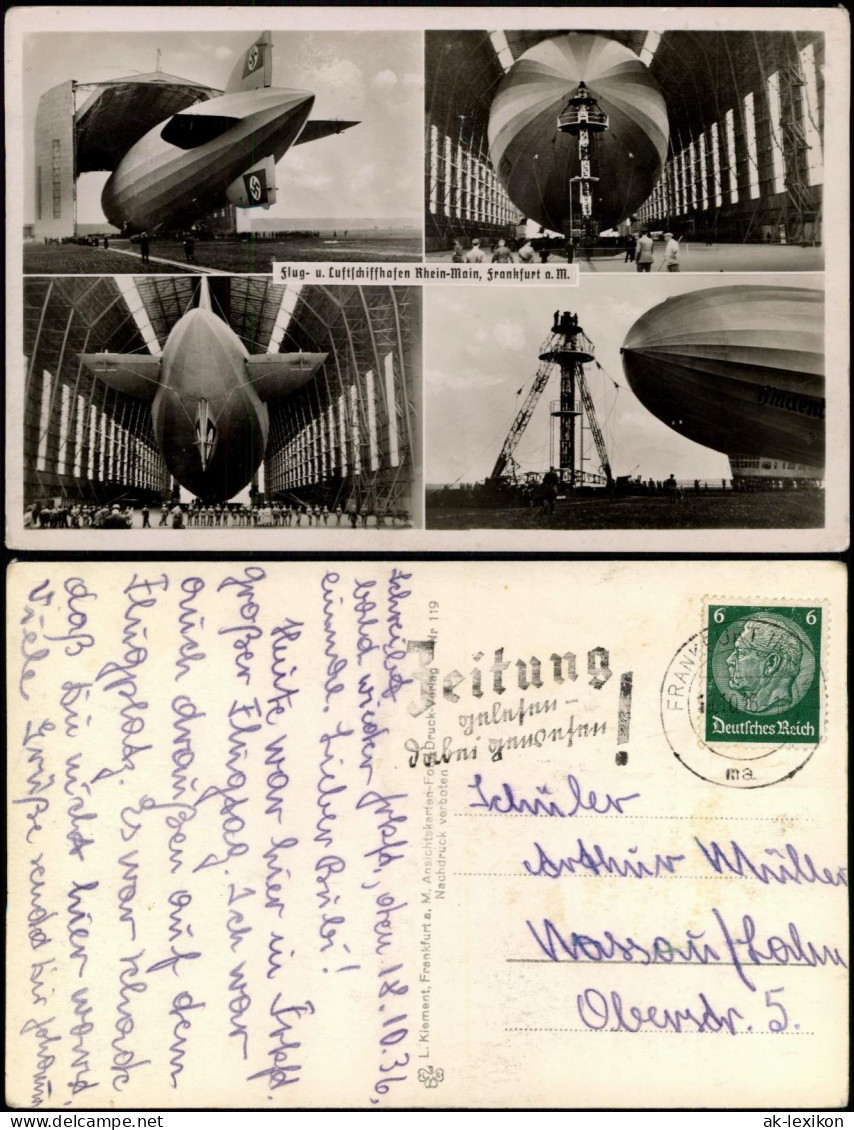 Flug- u. Luftschiffhafen Rhein-Main, Frankfurt a. M.
Hindenb
Schreibt
bald wieder
einmal.
Frkft, den 18.10.36,
Lieber Bubi!
Heute war hier in Frkft.
großer Flugtag. Ich war
auch draußen auf dem
Flugplatz. Es war schade
daß du nicht hier warst.
Viele Grüße sendet dir
L. Klement, Frankfurt a. M. Ansichtskarten-Foto-Druck-Verlag Nr 119
Nachdruck verboten
Zeitung
gelesen -
dabei gewesen!
FRANKFURT
6 6
Deutsches Reich
Schüler
Arthur Müller
Nassau/Lahn
Oberstr. 5.
ak-lexikon